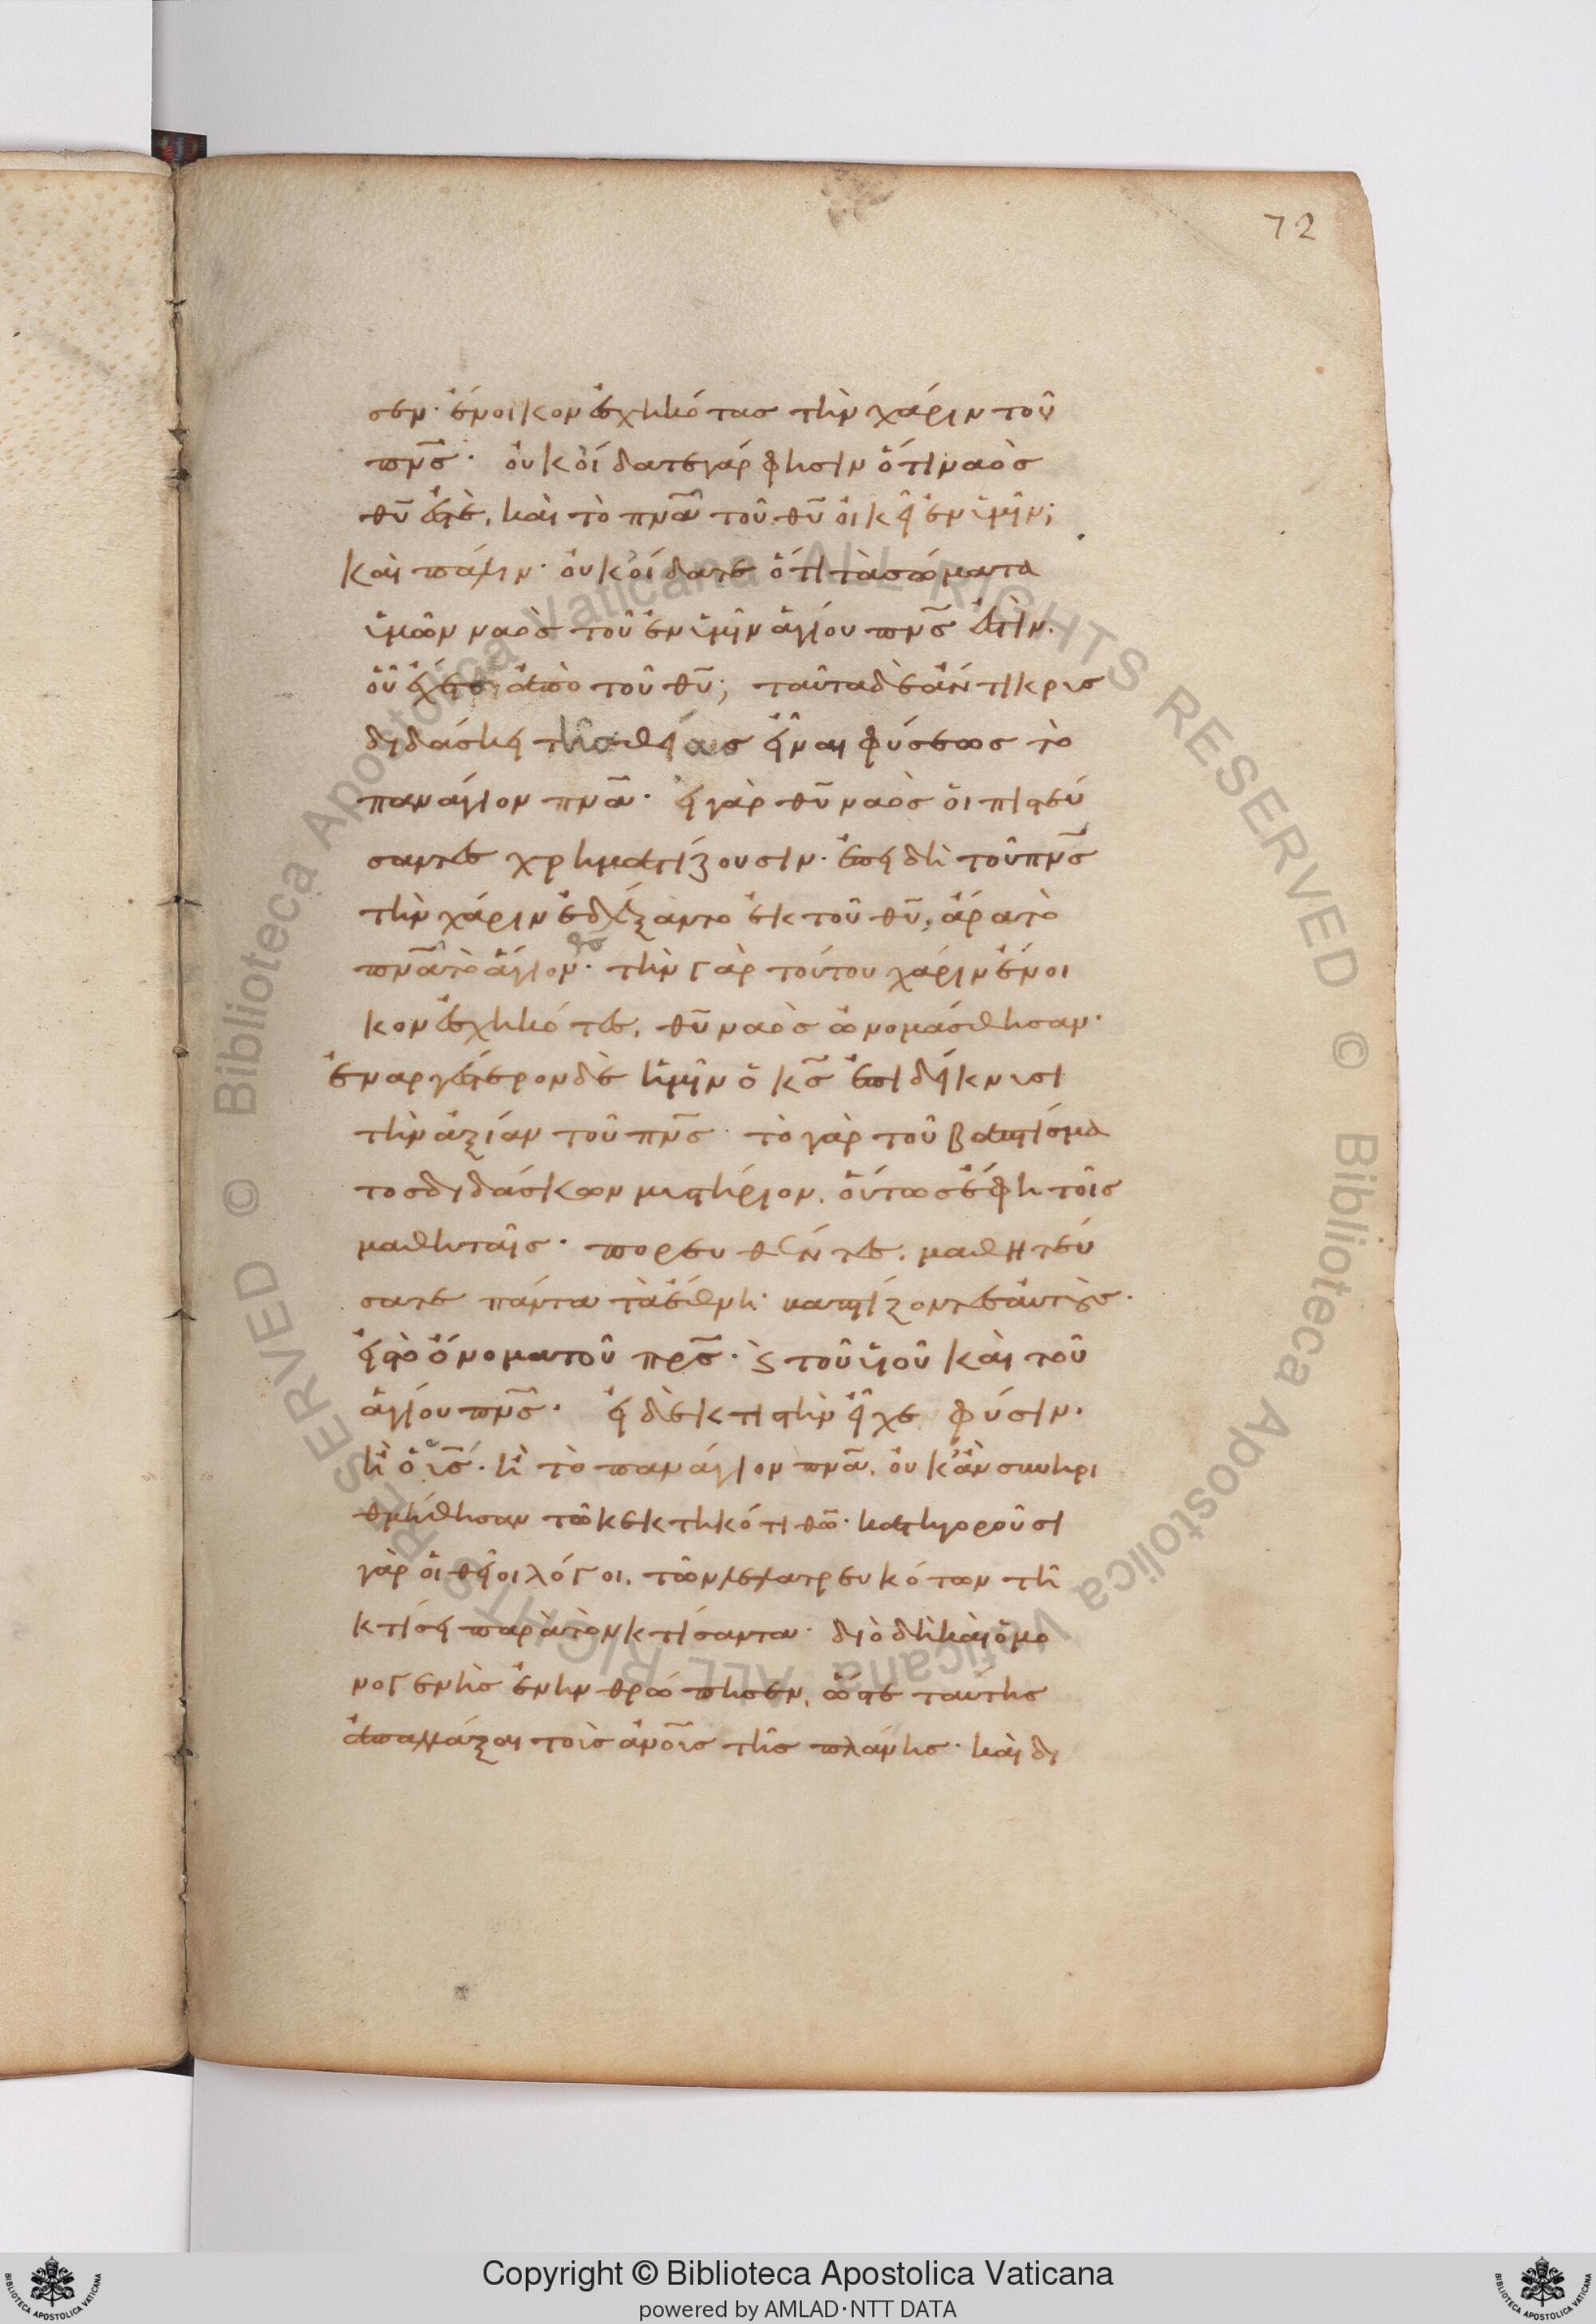 72
σεν· ἔνοικον ἐσχηκότας τὴν χάριν τοῦ
πνς· οὐκ οἴδατε γάρ φησιν ὅτι ναὸς
θυ ἐστὲ, καὶ τὸ πνα τοῦ θυ οἰκεῖ ἐν ὑμῖν;
καὶ πάλιν· οὐκ οἴδατε ὅτι τὰ σώματα
ὑμῶν ναὸς τοῦ ἐν ὑμῖν ἁγίου πνς ἐστὶν.
οὗ ἔχετε ἀπὸ τοῦ θυ; ταῦτα δὲ ἄντικρυς
διδάσκει τῆς θείας εἶναι φύσεως τὸ
πανάγιον πνα· εἰ γὰρ θυ ναὸς οἱ πιστεύ
σαντες χρηματίζουσιν· ἐπειδὴ τοῦ πνς
τὴν χάριν ἐδέξαντο ἐκ τοῦ θυ, ἄρα τὸ
πνα τὸ ἅγιον· τὴν γὰρ τούτου χάριν ἔνοι
κον ἐσχηκότες, θυ ναὸς ὠνομάσθησαν·
ἐναργέστερον δὲ ἡμῖν ὁ κς ἐπιδείκνυσι
τὴν ἀξίαν τοῦ πνς· τὸ γὰρ τοῦ βαπτίσμα
τος διδάσκων μυστήριον, οὕτως ἔφη τοῖς
μαθηταῖς· πορευθέντες, μαθητεύ
σατε πάντα τὰ ἔθνη· βαπτίζοντες αὐτοὺς·
εἰς τὸ ὄνομα τοῦ πρς· καὶ τοῦ υἱοῦ καὶ τοῦ
ἁγίου πνς· εἰ δὲ κτιστὴν εἶχε φύσιν·
ἢ ὁ υς· ἢ τὸ πανάγιον πνα, οὐκ ἂν συνηρι
θμήθησαν τῶ κεκτηκότι θω· κατηγοροῦσι
γὰρ οἱ θεῖοι λόγοι, τῶν λελατρευκότων τῆ
κτίσει παρὰ τὸν κτίσαντα· διὸ δὴ καὶ ὁ μο
νογενὴς ἐνηνθρώπησεν, ὥστε ταύτης
ἀπαλλάξαι τοὺς ἀνους τῆς πλάνης· καὶ δι
Copyright © Biblioteca Apostolica Vaticana
powered by AMLAD·NTT DATA